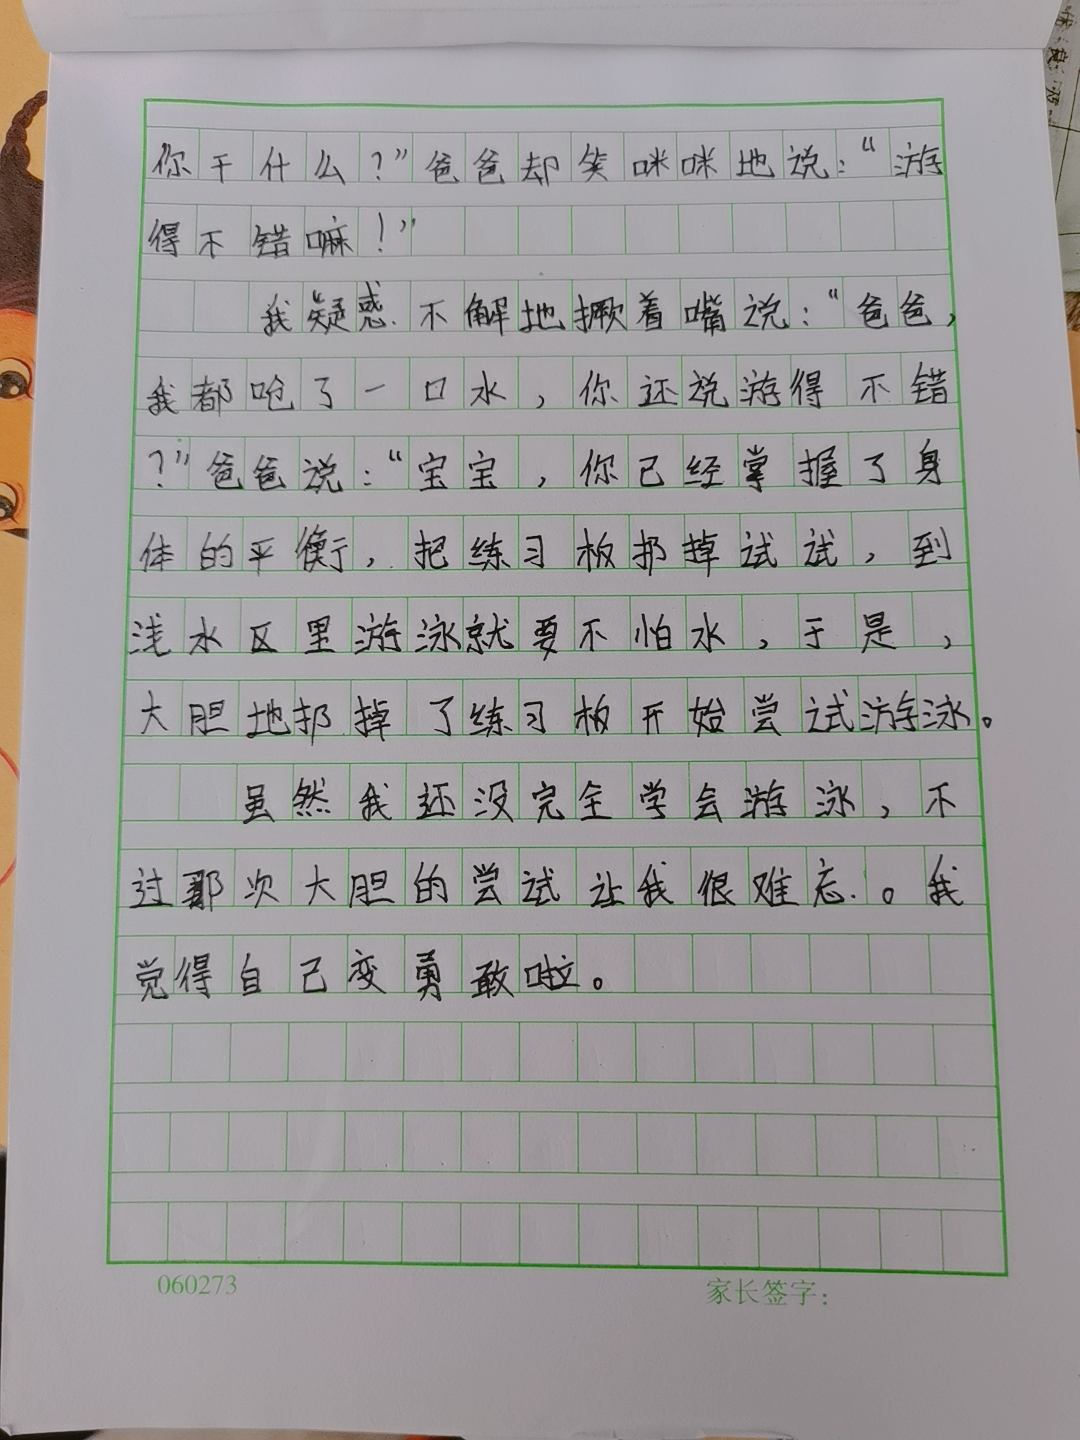 你干什么？”爸爸却笑咪咪地说：“游
得不错嘛！”
我疑惑不解地撅着嘴说：“爸爸，
我都呛了一口水，你还说游得不错
？”爸爸说：“宝宝，你已经掌握了身
体的平衡，把练习板扔掉试试，到
浅水区里游泳就要不怕水，于是，
大胆地扔掉了练习板开始尝试游泳。
虽然我还没完全学会游泳，不
过那次大胆的尝试让我很难忘。我
觉得自己变勇敢啦。
060273
家长签字：